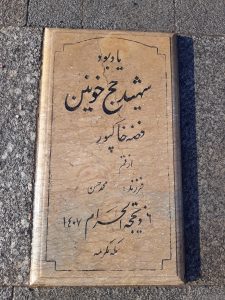 یادبود
شهید حج خونین
فضه خاکپور
از قم
فرزند: محمدحسن
۶ ذیحجه الحرام ۱۴۰۷
مکه مکرمه